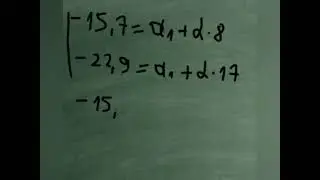 -15,7=a₁+d·8
-22,9=a₁+d·17
-15,